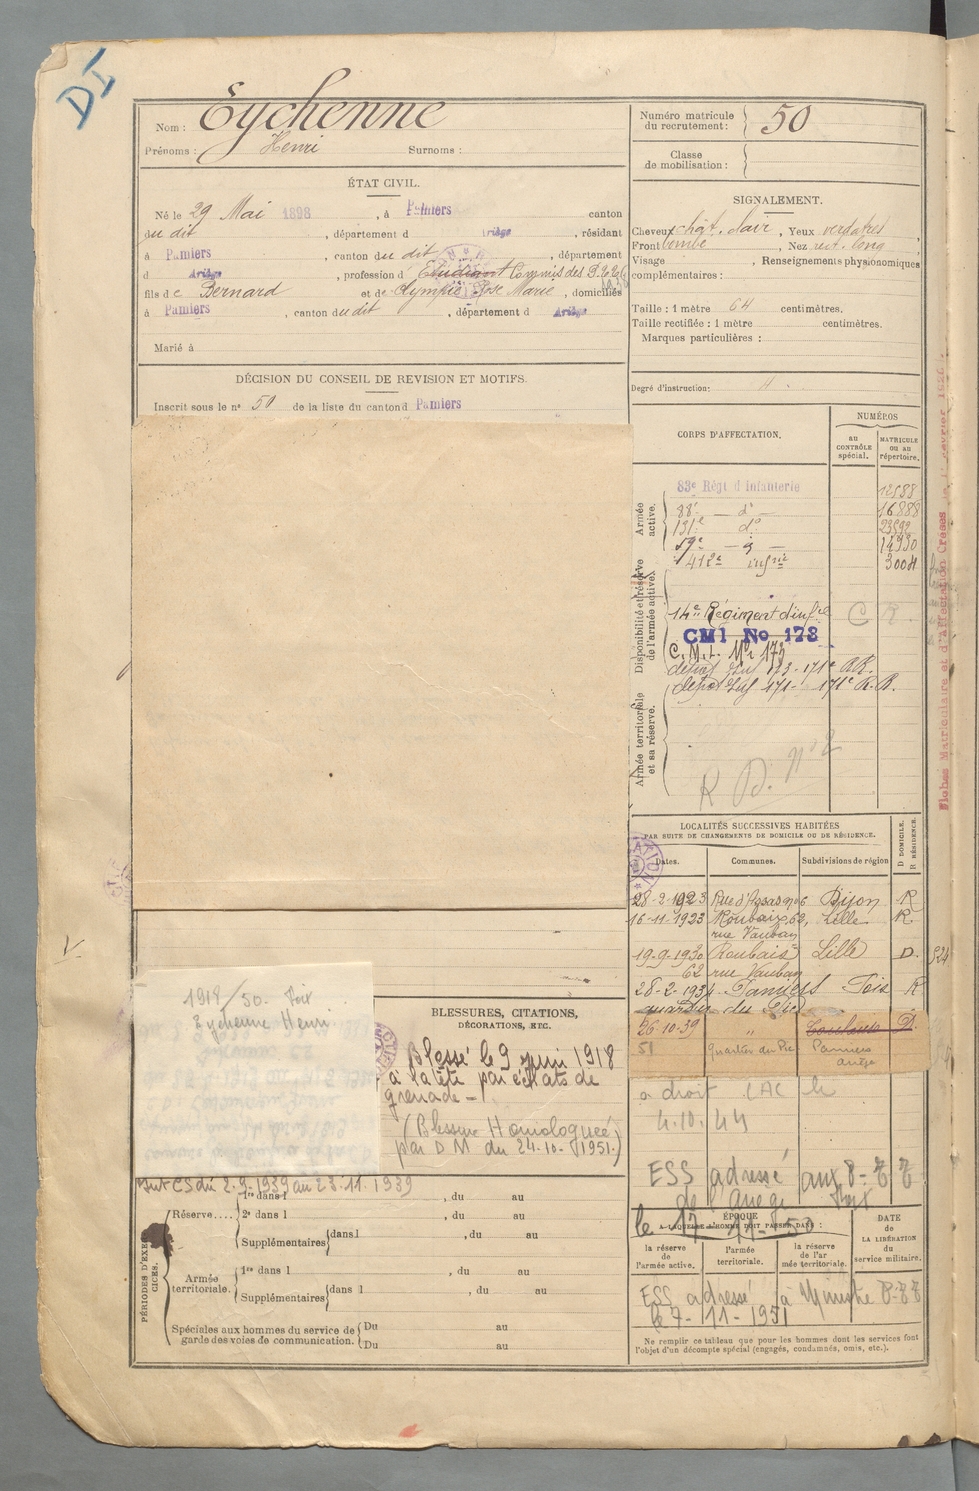 DI
Nom : Eychenne
Prénoms : Henri Surnoms :
ÉTAT CIVIL.
Né le 29 Mai 1898, à Pamiers canton
du dit, département d Ariège, résidant
à Pamiers, canton du dit, département
d Ariège, profession d Etudiant Commis des P.
fils de Bernard et de Olympie Rose Marie, domiciliés
à Pamiers, canton du dit, département d Ariège
Marié à
DÉCISION DU CONSEIL DE REVISION ET MOTIFS.
Inscrit sous le nº 50 de la liste du canton d Pamiers
1918/50. Foix
Eychenne Henri
BLESSURES, CITATIONS,
DÉCORATIONS, ETC.
Blessé le 9 juin 1918
à la tête par éclats de
grenade =
(Blessure Homologuée
par D M du 24-10-1951.)
CS du 2-9-1939 au 23.11.1939
PÉRIODES D'EXERCICES.
Réserve.... 1re dans l , du au
2e dans l , du au
Supplémentaires dans l , du au
Armée territoriale. 1re dans l , du au
Supplémentaires dans l , du au
Spéciales aux hommes du service de garde des voies de communication. Du au
Du au
Numéro matricule
du recrutement : 50
Classe
de mobilisation :
SIGNALEMENT.
Cheveux chât. clair, Yeux verdâtres
Front bombé, Nez rect. long
Visage , Renseignements physionomiques
complémentaires :
Taille : 1 mètre 64 centimètres.
Taille rectifiée : 1 mètre centimètres.
Marques particulières :
Degré d'instruction :
CORPS D'AFFECTATION.
NUMÉROS
au
CONTRÔLE
spécial.
MATRICULE
OU AU
répertoire.
Armée active.
83e Régt d'Infanterie 12588
88e — dº — 16888
131e dº 23592
59e — 14930
412e infrie 3004
Disponibilité et réserve de l'armée active.
14e Régiment d'infie C R.
CMI No 173
C.M.I. Nº 173
dépôt Inf 173 - 171e R.R.
dépôt Inf 171 - 171e R.R.
Armée territoriale et sa réserve.
R D. nº 2
Fiches Matriculaire et d'Affectation Créées
LOCALITÉS SUCCESSIVES HABITÉES
PAR SUITE DE CHANGEMENTS DE DOMICILE OU DE RÉSIDENCE.
Dates. Communes. Subdivisions de région D DOMICILE. R RÉSIDENCE.
28-2-1923 Rue d'Assas nº 6 Dijon R
16-11-1923 Roubaix, 62, Lille R.
rue Vauban
19-9-1930 Roubaix Lille D.
62 rue Vauban
28-2-1934 Pamiers Foix R
quartier des
26-10-39 " Toulouse D.
51 quartier du Pic Pamiers
Ariège
a droit CAC le
4.10.44
ESS adressé aux
de l'Ariège
le 17 11-50
ÉPOQUE
A LAQUELLE L'HOMME DOIT PASSER DANS :
DATE
de
LA LIBÉRATION
du
service militaire.
la réserve
de
l'armée active.
l'armée
territoriale.
la réserve
de l'ar
mée territoriale.
ESS adressé à
le 7-11-1951
Ne remplir ce tableau que pour les hommes dont les services font
l'objet d'un décompte spécial (engagés, condamnés, omis, etc.).